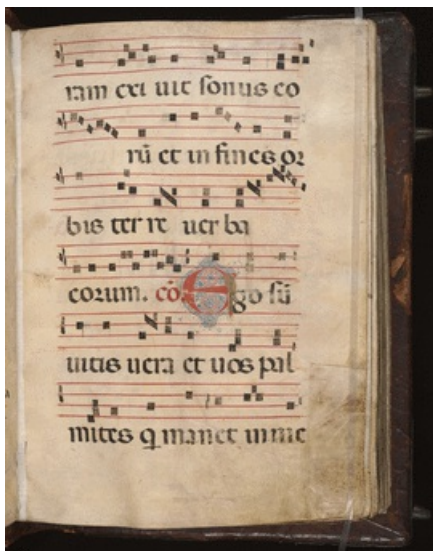 ram exi uit sonus eo
rū et in fines or
bis ter re uer ba
eorum. cō. Ego sū
uitis uera et uos pal
mites q manet in me